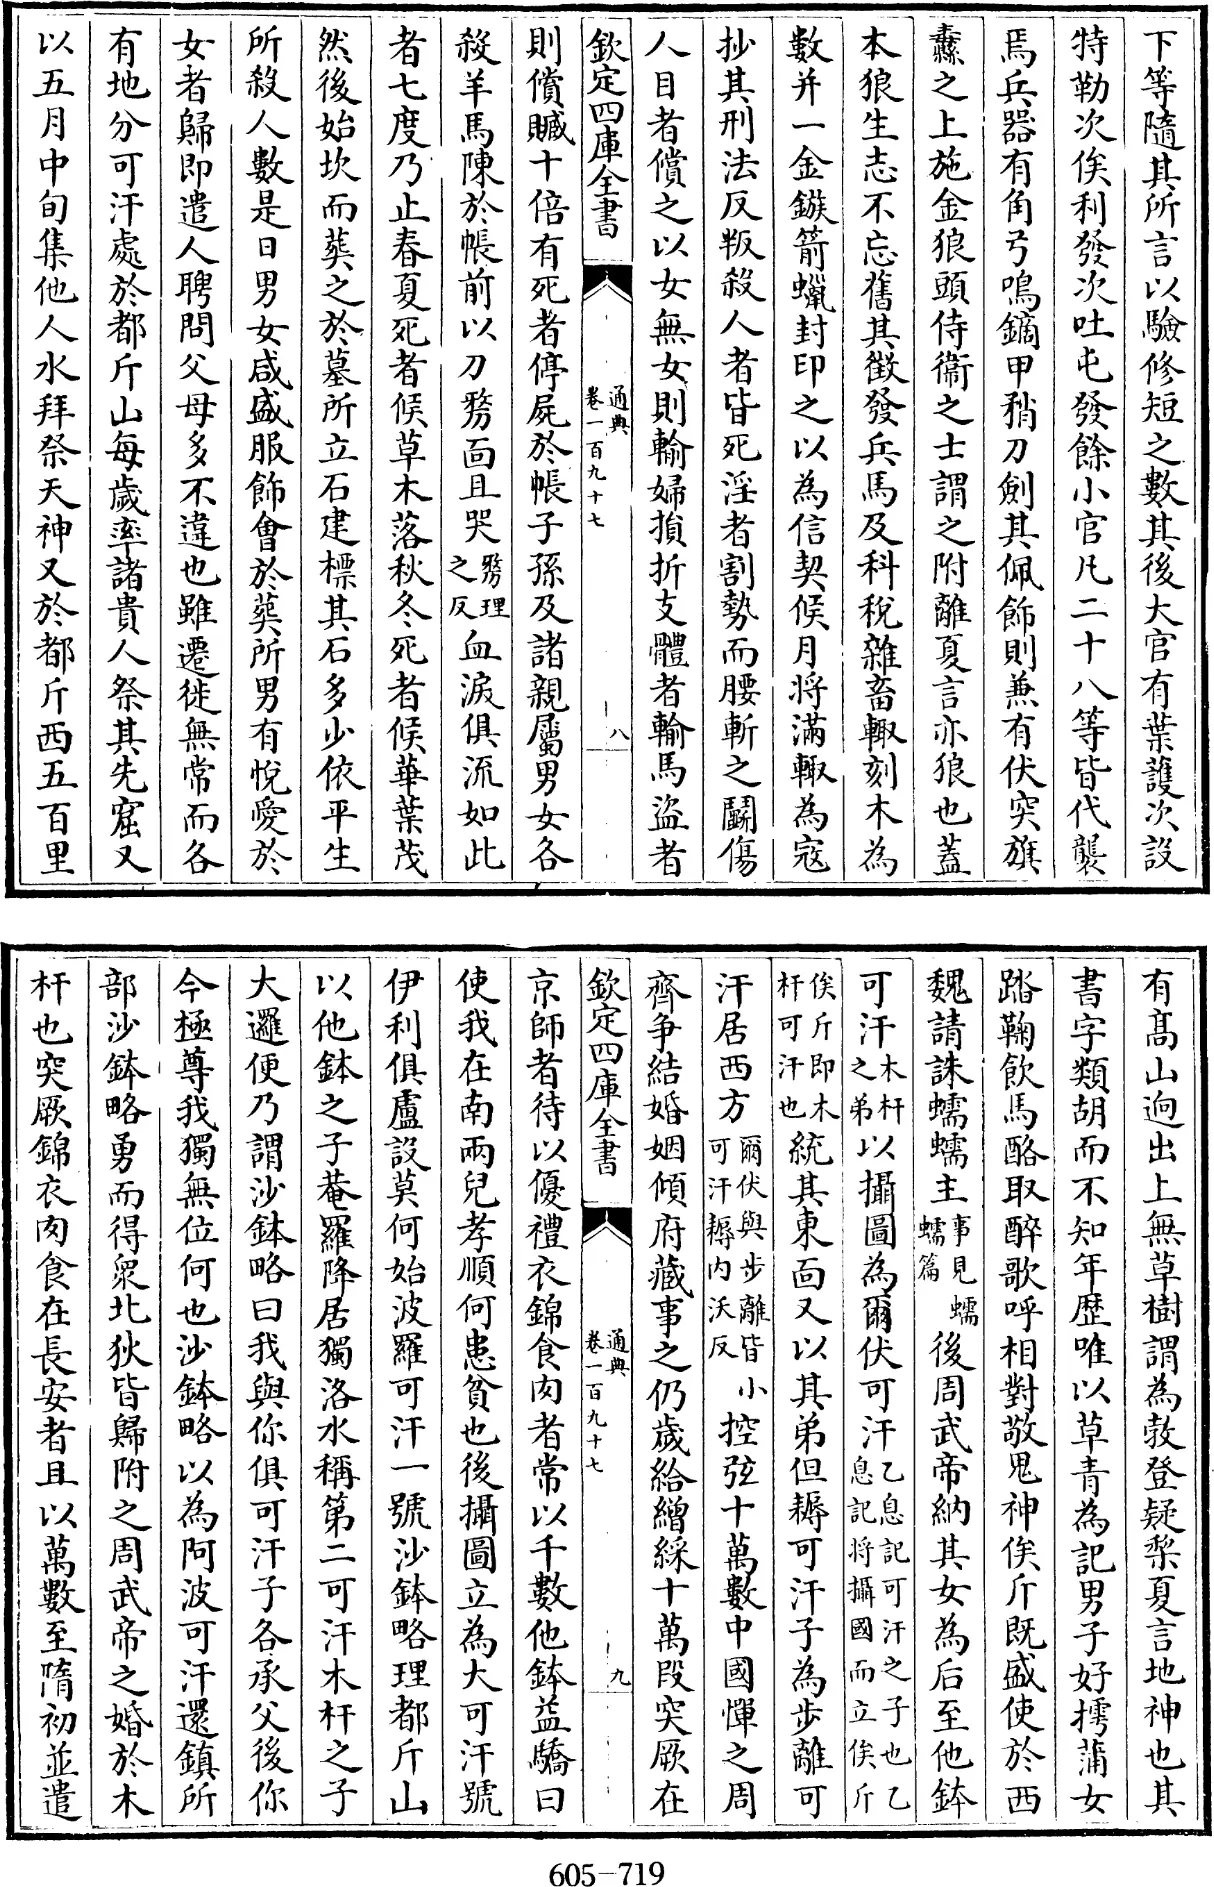 下等隨其所言以驗修短之數其後大官有葉護次設
特勒次俟利發次吐屯發餘小官凡二十八等皆代襲
焉兵器有角弓鳴鏑甲矟刀劍其佩飾則兼有伏突旗
纛之上施金狼頭侍衛之士謂之附離夏言亦狼也蓋
本狼生志不忘舊其徵發兵馬及科稅雜畜輙刻木為
數并一金鏃箭蠟封印之以為信契候月將滿輙為寇
抄其刑法反叛殺人者皆死淫者割勢而腰斬之鬭傷
人目者償之以女無女則輸婦損折支體者輸馬盜者
欽定四庫全書
通典
卷一百九十七
八
則償贓十倍有死者停屍於帳子孫及諸親屬男女各
殺羊馬陳於帳前以刀剺面且哭剺理之反血淚俱流如此
者七度乃止春夏死者候草木落秋冬死者候華葉茂
然後始坎而葬之於墓所立石建標其石多少依平生
所殺人數是日男女咸盛服飾會於葬所男有悅愛於
女者歸即遣人聘問父母多不違也雖遷徙無常而各
有地分可汗處於都斤山每歲率諸貴人祭其先窟又
以五月中旬集他人水拜祭天神又於都斤西五百里
有髙山逈出上無草樹謂為敦登疑棃夏言地神也其
書字類胡而不知年歷唯以草青為記男子好摴蒲女
踏鞠飲馬酪取醉歌呼相對敬鬼神俟斤既盛使於西
魏請誅蠕蠕主事見蠕蠕篇後周武帝納其女為后至他鉢
可汗木杆之弟以攝圖為爾伏可汗乙息記可汗之子也乙息記將攝國而立俟斤
俟斤即木杆可汗也統其東面又以其弟但耨可汗子為步離可
汗居西方爾伏與步離皆小可汗耨內沃反控弦十萬數中國憚之周
齊爭結婚姻傾府藏事之仍歲給繒綵十萬段突厥在
欽定四庫全書
通典
卷一百九十七
九
京師者待以優禮衣錦食肉者常以千數他鉢益驕曰
使我在南兩兒孝順何患貧也後攝圖立為大可汗號
伊利俱盧設莫何始波羅可汗一號沙鉢略理都斤山
以他鉢之子菴羅降居獨洛水稱第二可汗木杆之子
大邏便乃謂沙鉢略曰我與你俱可汗子各承父後你
今極尊我獨無位何也沙鉢略以為阿波可汗還鎮所
部沙鉢略勇而得衆北狄皆歸附之周武帝之婚於木
杆也突厥錦衣肉食在長安者且以萬數至隋初並遣
605-719